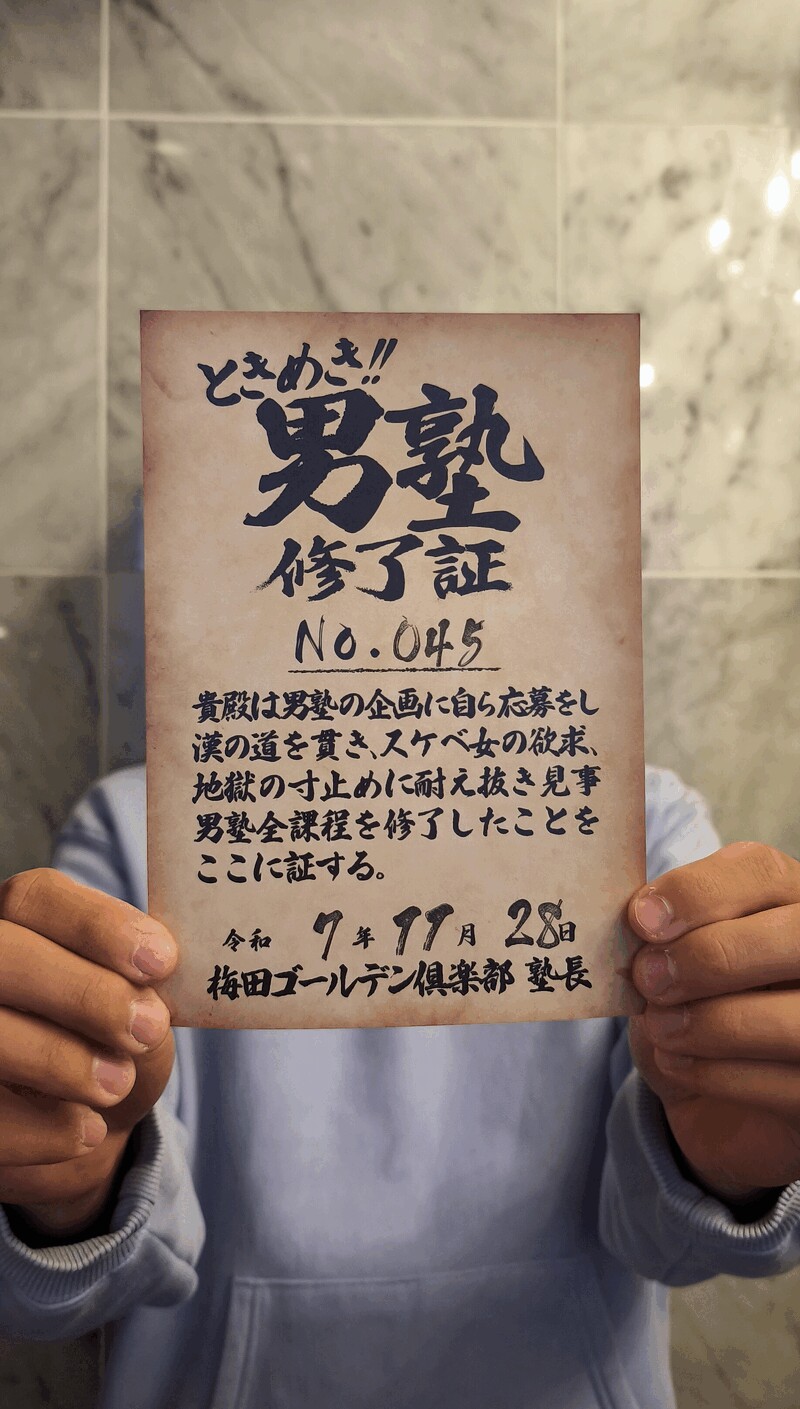 ときめき!!
男塾
修了証
No.045
貴殿は男塾の企画に自ら応募をし
漢の道を貫き、スケベ女の欲求、
地獄の寸止めに耐え抜き見事
男塾全課程を修了したことを
ここに証する。
令和 7年 11月 28日
梅田ゴールデン倶楽部 塾長